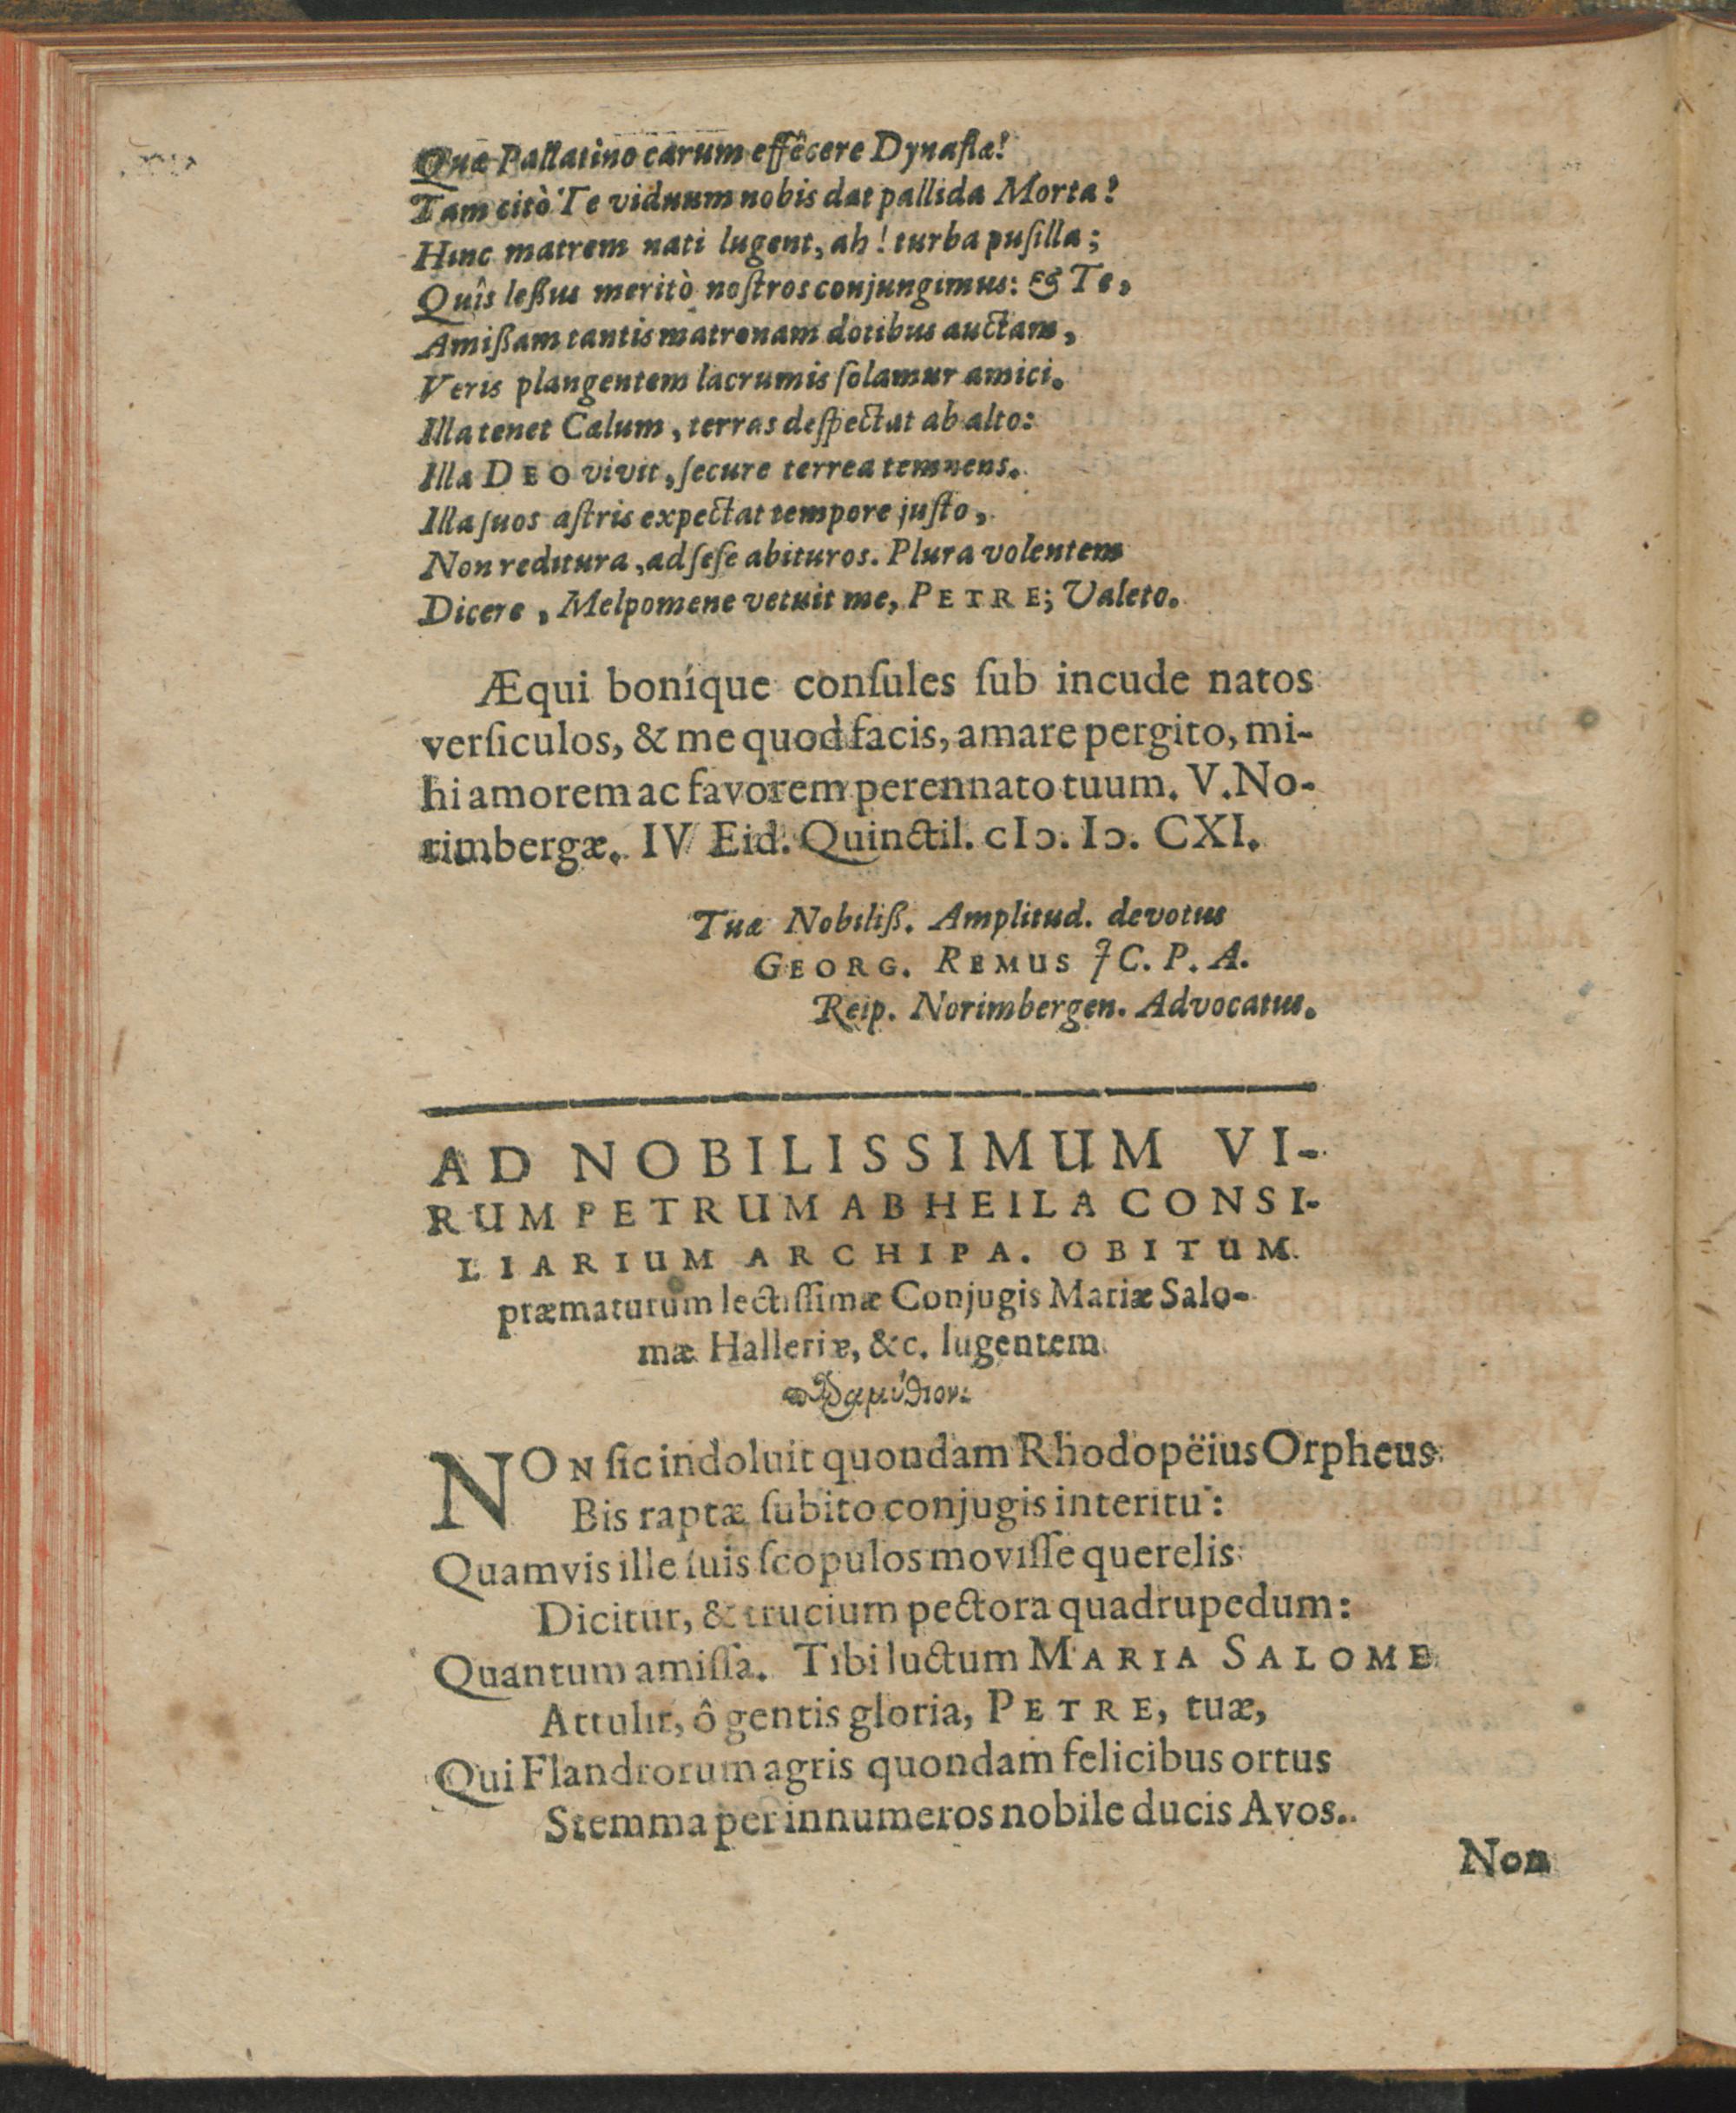 Quæ Pallatino carum effêcere Dynastæ!
Tam citò Te viduum nobis dat pallida Morta!
Hinc matrem nati lugent, ah! turba pusilla;
Quîs leßus meritò nostros conjungimus: & Te,
Amißam tantis matronam dotibus auctam,
Veris plangentem lacrumis solamur amici.
Illa tenet Cælum, terras despectat ab alto:
Illa DEO vivit, secure terrea temnens.
Illa suos astris expectat tempore justo,
Non reditura, ad sese abituros. Plura volentem
Dicere, Melpomene vetuit me, PETRE; Valeto.
Æqui boníque consules sub incude natos
versiculos, & me quod facis, amare pergito, mi-
hi amorem ac favorem perennato tuum. V. No-
rimbergæ. IV Eid. Quinctil. cIↄ. Iↄ. CXI.
Tuæ Nobiliß. Amplitud. devotus
GEORG. REMUS JC. P. A.
Reip. Norimbergen. Advocatus.
AD NOBILISSIMUM VI-
RUM PETRUM AB HEILA CONSI-
LIARIUM ARCHIPA. OBITUM
præmaturum lectissimæ Conjugis Mariæ Salo-
mæ Halleriæ, &c. lugentem
παραμύθιον.
NON sic indoluit quondam Rhodopëius Orpheus
Bis raptæ subito conjugis interitu:
Quamvis ille suis scopulos movisse querelis
Dicitur, & trucium pectora quadrupedum:
Quantum amissa. Tibi luctum MARIA SALOME
Attulit, ô gentis gloria, PETRE, tuæ,
Qui Flandrorum agris quondam felicibus ortus
Stemma per innumeros nobile ducis Avos.
Non